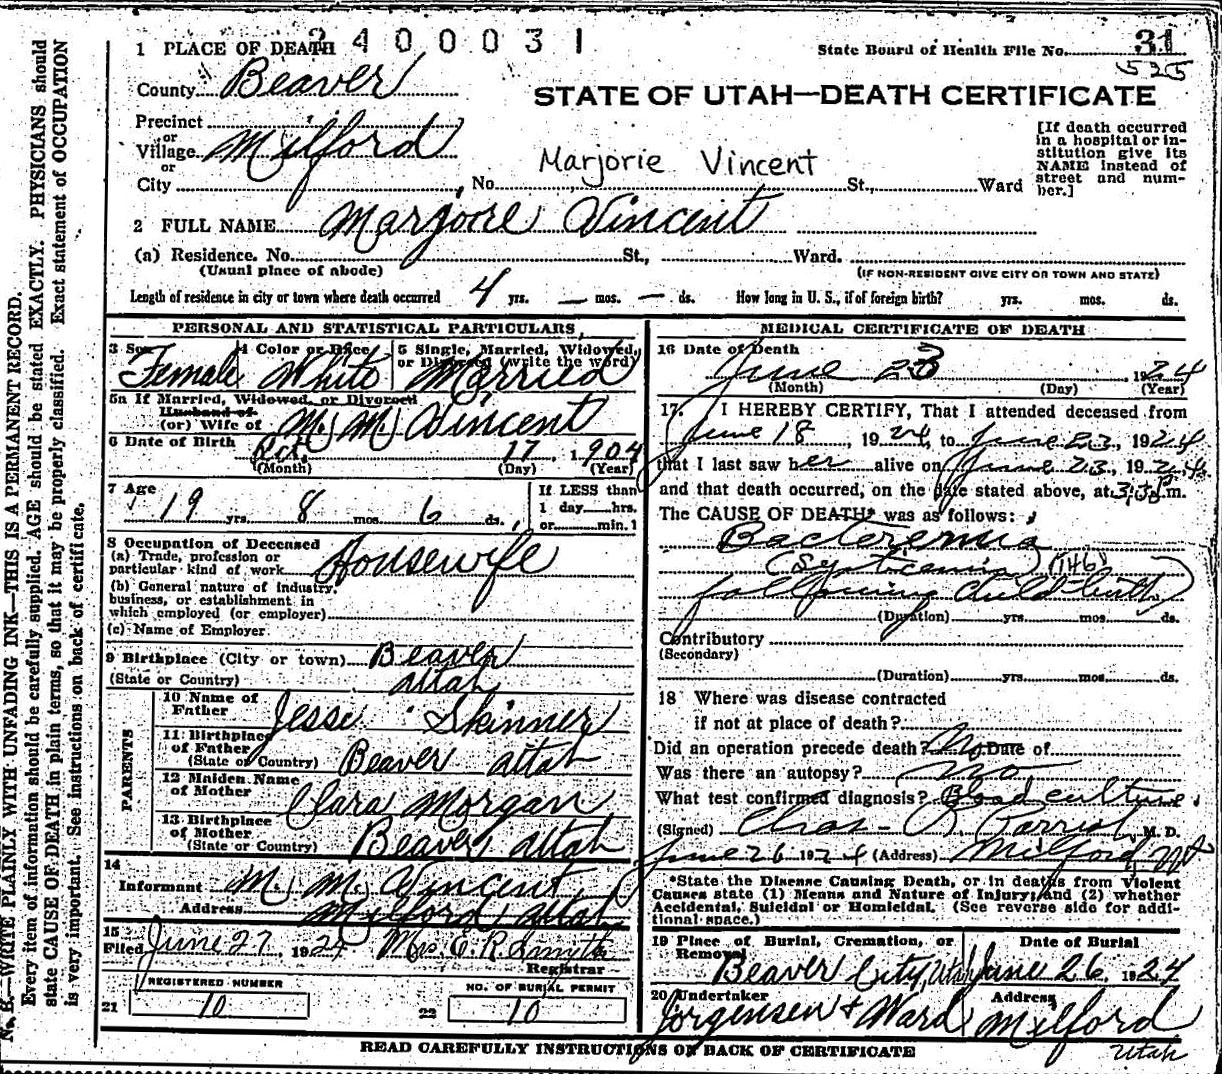 2400031
1 PLACE OF DEATH
State Board of Health File No. 31
525
County Beaver
STATE OF UTAH—DEATH CERTIFICATE
Precinct
or
Village Milford
or
City
No.
Marjorie Vincent
St., Ward
[If death occurred
in a hospital or in-
stitution give its
NAME instead of
street and num-
ber.]
2 FULL NAME Marjorie Vincent
(a) Residence. No. St., Ward.
(Usual place of abode)
(IF NON-RESIDENT GIVE CITY OR TOWN AND STATE)
Length of residence in city or town where death occurred 4 yrs. — mos. — ds. How long in U. S., if of foreign birth? yrs. mos. ds.
PERSONAL AND STATISTICAL PARTICULARS
3 Sex Female
4 Color or Race White
5 Single, Married, Widowed, or Divorced (write the word) Married
5a If Married, Widowed, or Divorced
Husband of
(or) Wife of M. M. Vincent
6 Date of Birth Oct. 17, 1904
(Month) (Day) (Year)
7 Age 19 yrs. 8 mos. 6 ds.
If LESS than
1 day hrs.
or min. 1
8 Occupation of Deceased
(a) Trade, profession or
particular kind of work Housewife
(b) General nature of industry,
business, or establishment in
which employed (or employer)
(c) Name of Employer
9 Birthplace (City or town) Beaver
(State or Country) Utah
PARENTS
10 Name of
Father Jesse Skinner
11 Birthplace
of Father
(State or Country) Beaver Utah
12 Maiden Name
of Mother Clara Morgan
13 Birthplace
of Mother
(State or Country) Beaver Utah
14
Informant M. M. Vincent
Address Milford, Utah
15
Filed June 27, 1924 Mrs. E. R. Smyth
Registrar
REGISTERED NUMBER
21 10
NO. OF BURIAL PERMIT
22 10
MEDICAL CERTIFICATE OF DEATH
16 Date of Death
June 23, 1924
(Month) (Day) (Year)
17. I HEREBY CERTIFY, That I attended deceased from
June 18, 1924, to June 23, 1924
that I last saw her alive on June 23, 1924
and that death occurred, on the date stated above, at 3:30 P.m.
The CAUSE OF DEATH* was as follows:
Bacteremia
(Septicemia) (146)
following childbirth)
(Duration) yrs. mos. ds.
Contributory
(Secondary)
(Duration) yrs. mos. ds.
18 Where was disease contracted
if not at place of death?
Did an operation precede death? No Date of
Was there an autopsy? No
What test confirmed diagnosis? Blood culture.
(Signed) Chas. Parrish, M. D.
June 26 1924 (Address) Milford, Ut
*State the Disease Causing Death, or in deaths from Violent
Causes state (1) Menus and Nature of Injury; and (2) whether
Accidental, Suicidal or Homicidal. (See reverse side for addi-
tional space.)
19 Place of Burial, Cremation, or
Removal Beaver City, Utah
Date of Burial
June 26 1924
20 Undertaker
Jorgensen & Ward
Address
Milford
Utah
READ CAREFULLY INSTRUCTIONS ON BACK OF CERTIFICATE
N. B.—WRITE PLAINLY WITH UNFADING INK—THIS IS A PERMANENT RECORD.
Every item of information should be carefully supplied. AGE should be stated EXACTLY. PHYSICIANS should
state CAUSE OF DEATH in plain terms, so that it may be properly classified. Exact statement of OCCUPATION
is very important. See instructions on back of certificate.